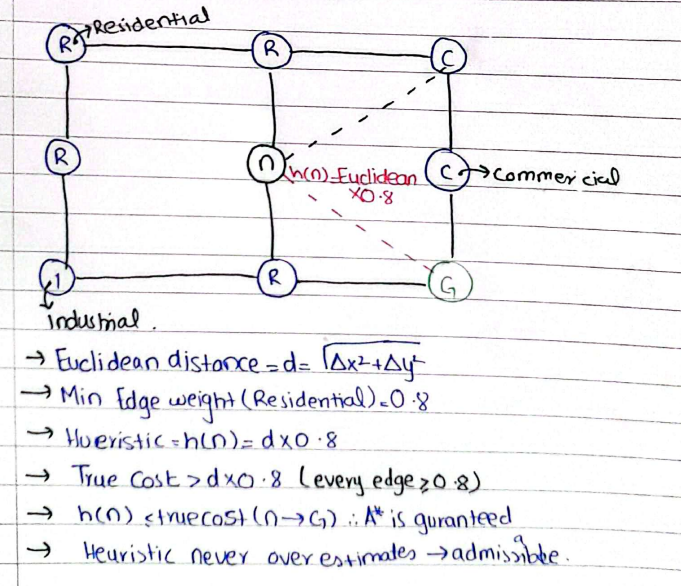 R → Residential
R
C
R
n
h(n)-Euclidean
x0.8
C → Commercial
I
R
G
industrial.
→ Euclidean distance = d = √Δx²+Δy²
→ Min Edge weight (Residential) = 0.8
→ Hueristic = h(n) = d x 0.8
→ True Cost > d x 0.8 (every edge ≥ 0.8)
→ h(n) < true cost (n → G) ∴ A* is guranteed
→ Heuristic never over estimates → admissible.